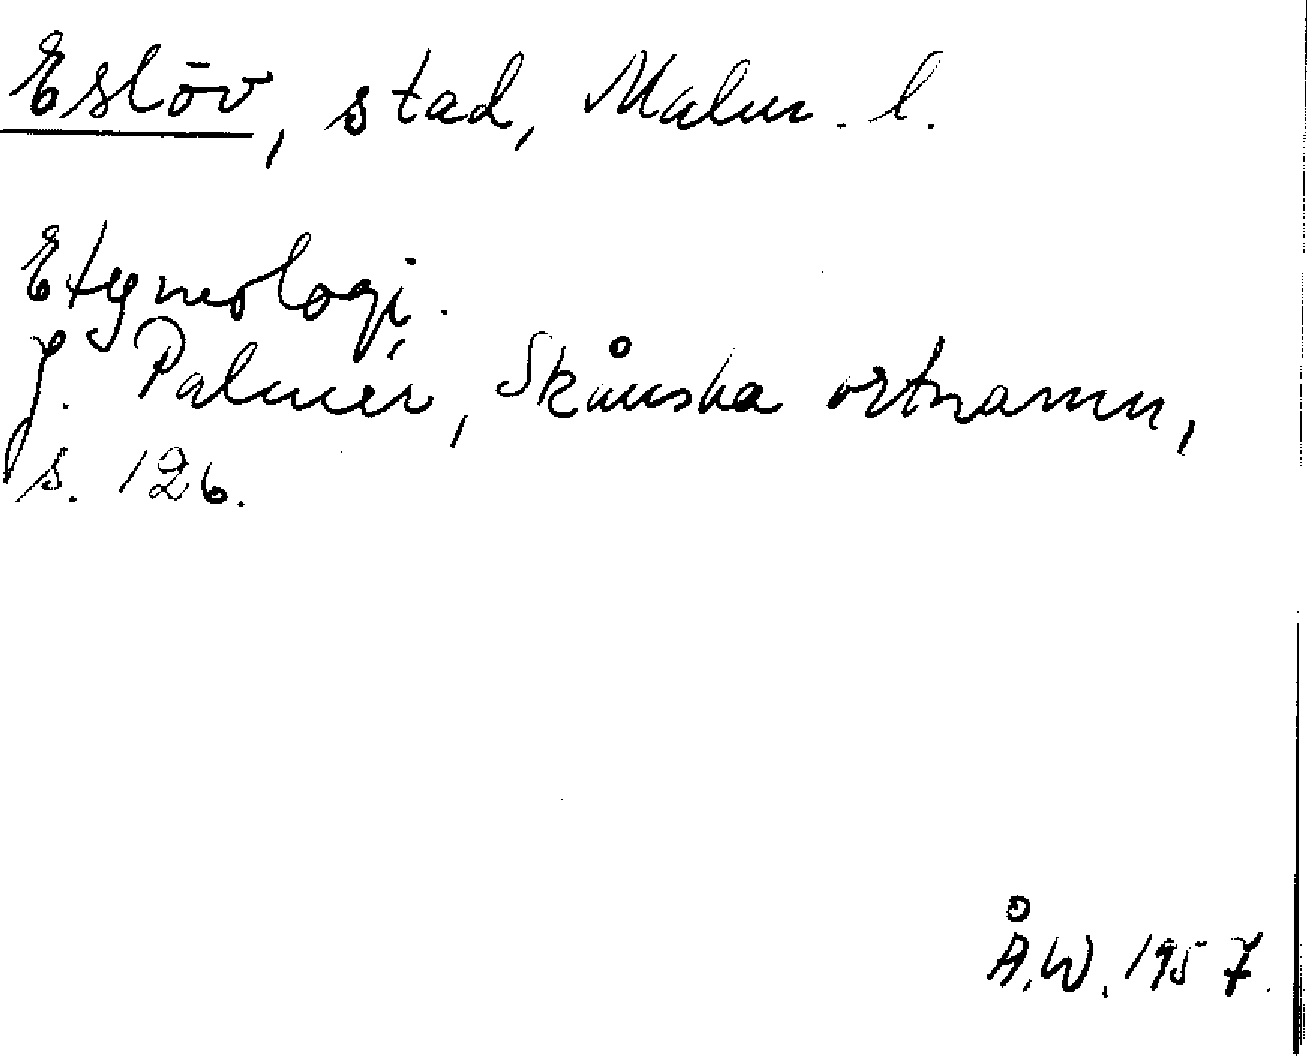 Eslöv, stad, Malm. l.
Etymologi.
J. Palmér, Skånska ortnamn,
s. 126.
Å.W. 1957.